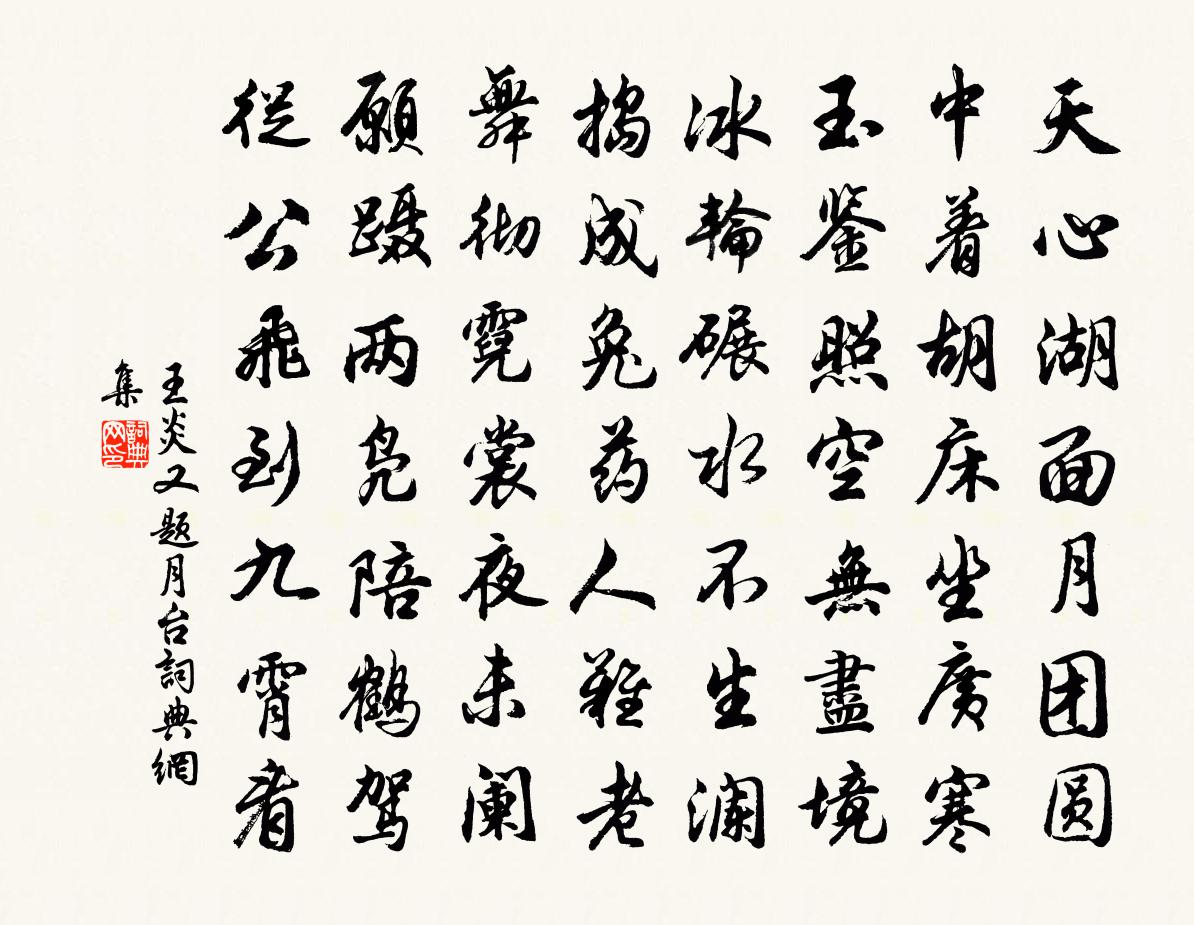 天心湖面月团圆
中着胡床坐廣寒
玉鉴照空無盡境
冰輪碾水不生澜
搗成兔药人難老
舞彻霓裳夜未阑
願蹑两凫陪鶴驾
從公飛到九霄看
王炎又題月台詞典網
集
詞典网印